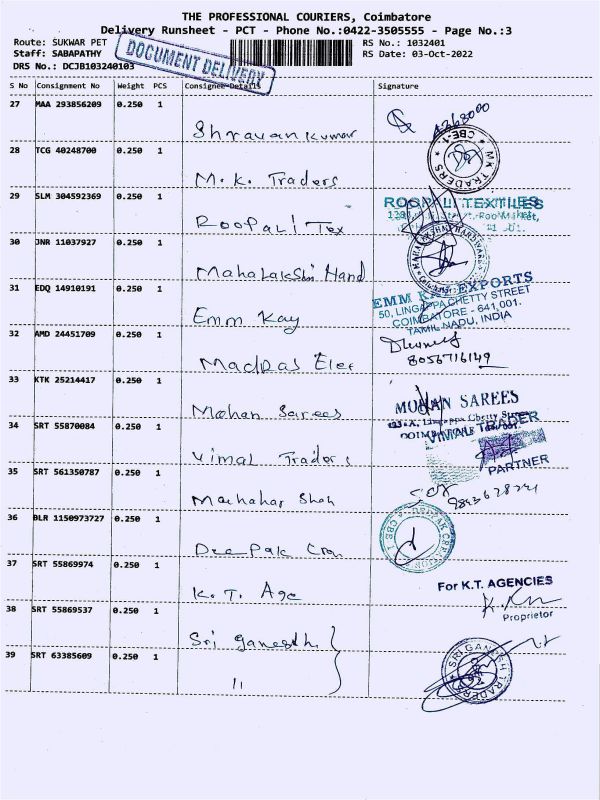 THE PROFESSIONAL COURIERS, Coimbatore
Delivery Runsheet - PCT - Phone No.:0422-3505555 - Page No.:3
Route: SUKWAR PET RS No.: 1032401
Staff: SABAPATHY RS Date: 03-Oct-2022
DRS No.: DCJB103240103
DOCUMENT DELIVERY
S No Consignment No Weight PCS Consignee Details Signature
27 MAA 293856209 0.250 1
Shravan kumar
28 TCG 40248700 0.250 1
CBE-1
MK TRADERS
M.K. Traders
29 SLM 304592369 0.250 1
ROOPALI TEXTILES
Roopali Tex
30 JNR 11037927 0.250 1
Mahalakshmi Hand
31 EDQ 14910191 0.250 1
EMM KAY EXPORTS
50, LINGAPPA CHETTY STREET
COIMBATORE - 641,001.
TAMIL NADU, INDIA
Emm Kay
32 AMD 24451709 0.250 1
8056716149
Madras Elec
33 KTK 25214417 0.250 1
MOHAN SAREES
Mohan Sarees
34 SRT 55870084 0.250 1
VIMAL TRADER
PARTNER
Vimal Traders
35 SRT 561350787 0.250 1
36 BLR 1150973727 0.250 1
Deepak
37 SRT 55869974 0.250 1
For K.T. AGENCIES
K.T. Age
Proprietor
38 SRT 55869537 0.250 1
Sri ganesh
39 SRT 63385609 0.250 1
SRI GANESH TRADERS
11